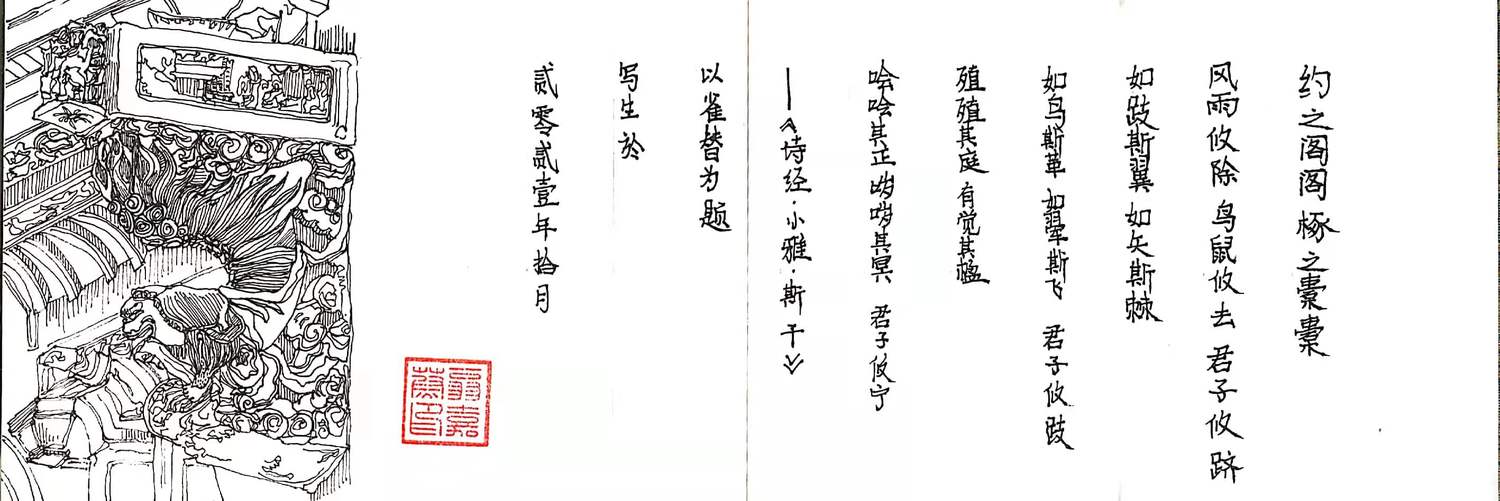 约之阁阁 椓之橐橐
风雨攸除 鸟鼠攸去 君子攸跻
如跂斯翼 如矢斯棘
如鸟斯革 如翚斯飞 君子攸跂
殖殖其庭 有觉其楹
哙哙其正 哕哕其冥 君子攸宁
——《诗经·小雅·斯干》
以雀替为题
写生於
贰零贰壹年拾月